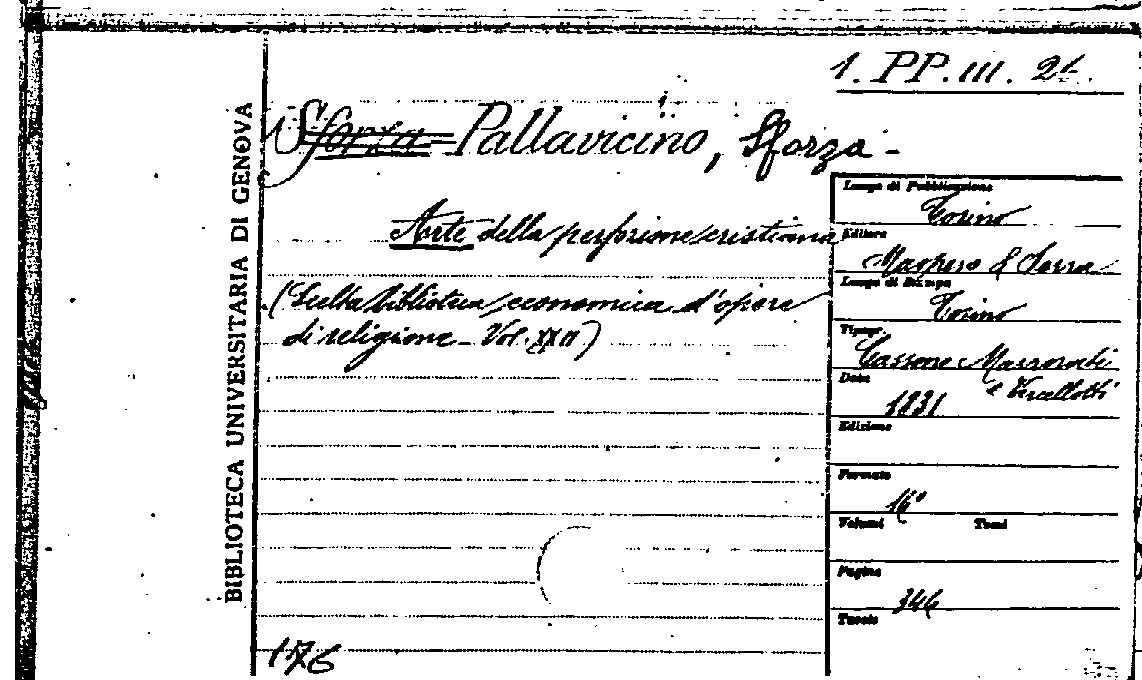 1. PP. III. 21.
BIBLIOTECA UNIVERSITARIA DI GENOVA
Sforza Pallavicino, Sforza -
Arte della perfezione cristiana
(Scelta biblioteca economica d'opere
di religione - Vol. XXII)
Luogo di Pubblicazione
Torino
Editore
Marspero & Serra
Luogo di Stampa
Torino
Tipogr.
Cassone Marzorati
e Vercellotti
Data
1831
Edizione
Formato
16°
Volumi Tomi
Pagine
346
Tavole
176